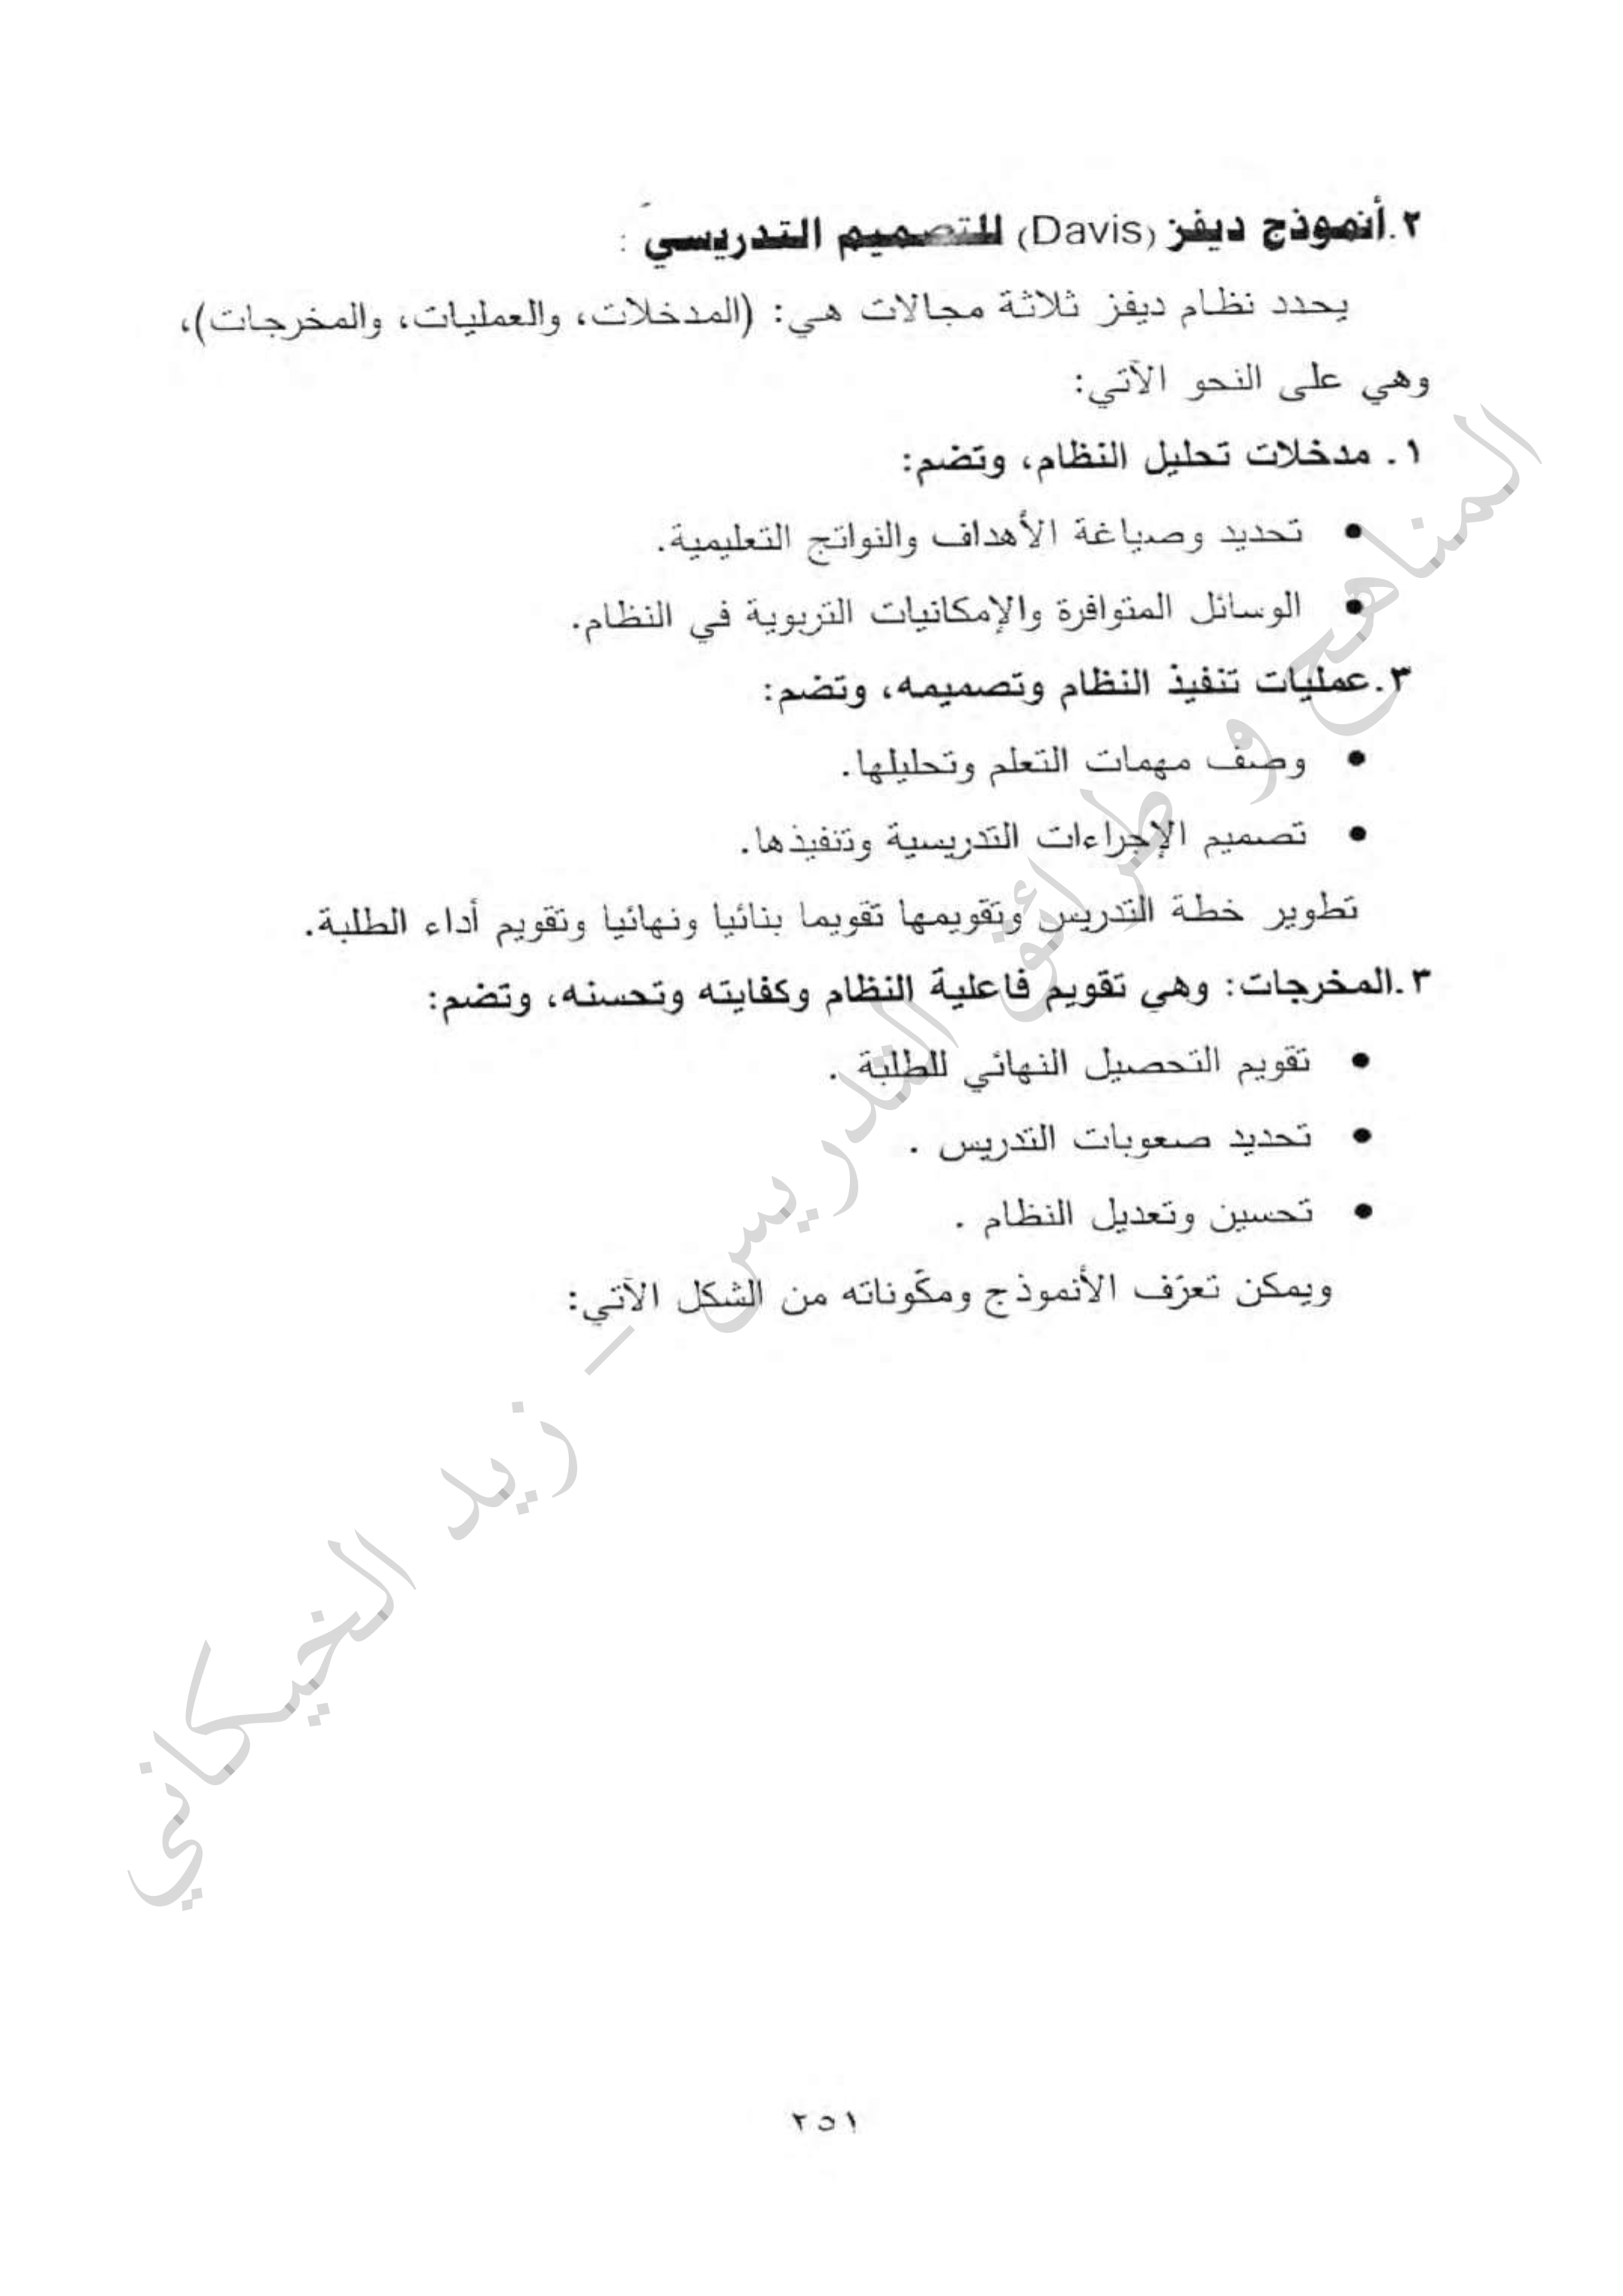 ٢.أنموذج ديفز (Davis) للتصميم التدريسي :
يحدد نظام ديفز ثلاثة مجالات هي: (المدخلات، والعمليات، والمخرجات)،
وهي على النحو الآتي:
١. مدخلات تحليل النظام، وتضم:
• تحديد وصياغة الأهداف والنواتج التعليمية.
• الوسائل المتوافرة والإمكانيات التربوية في النظام.
٣.عمليات تنفيذ النظام وتصميمه، وتضم:
• وصف مهمات التعلم وتحليلها.
• تصميم الإجراءات التدريسية وتنفيذها.
تطوير خطة التدريس وتقويمها تقويما بنائيا ونهائيا وتقويم أداء الطلبة.
٣.المخرجات: وهي تقويم فاعلية النظام وكفايته وتحسنه، وتضم:
• تقويم التحصيل النهائي للطلبة .
• تحديد صعوبات التدريس .
• تحسين وتعديل النظام .
ويمكن تعرّف الأنموذج ومكوناته من الشكل الآتي:
المناهج و طرائق التدريس – زيد الخيكاني
٢٥١